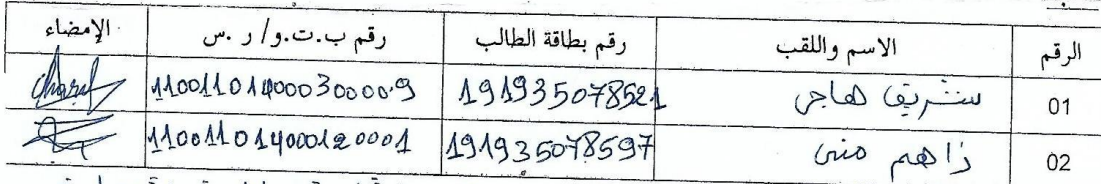 الرقم الاسم واللقب رقم بطاقة الطالب رقم ب.ت.و/ ر.س الإمضاء
01 شريف هاجر 191935078521 110011014000300009
02 زاهم منى 191935078597 110011014000120001